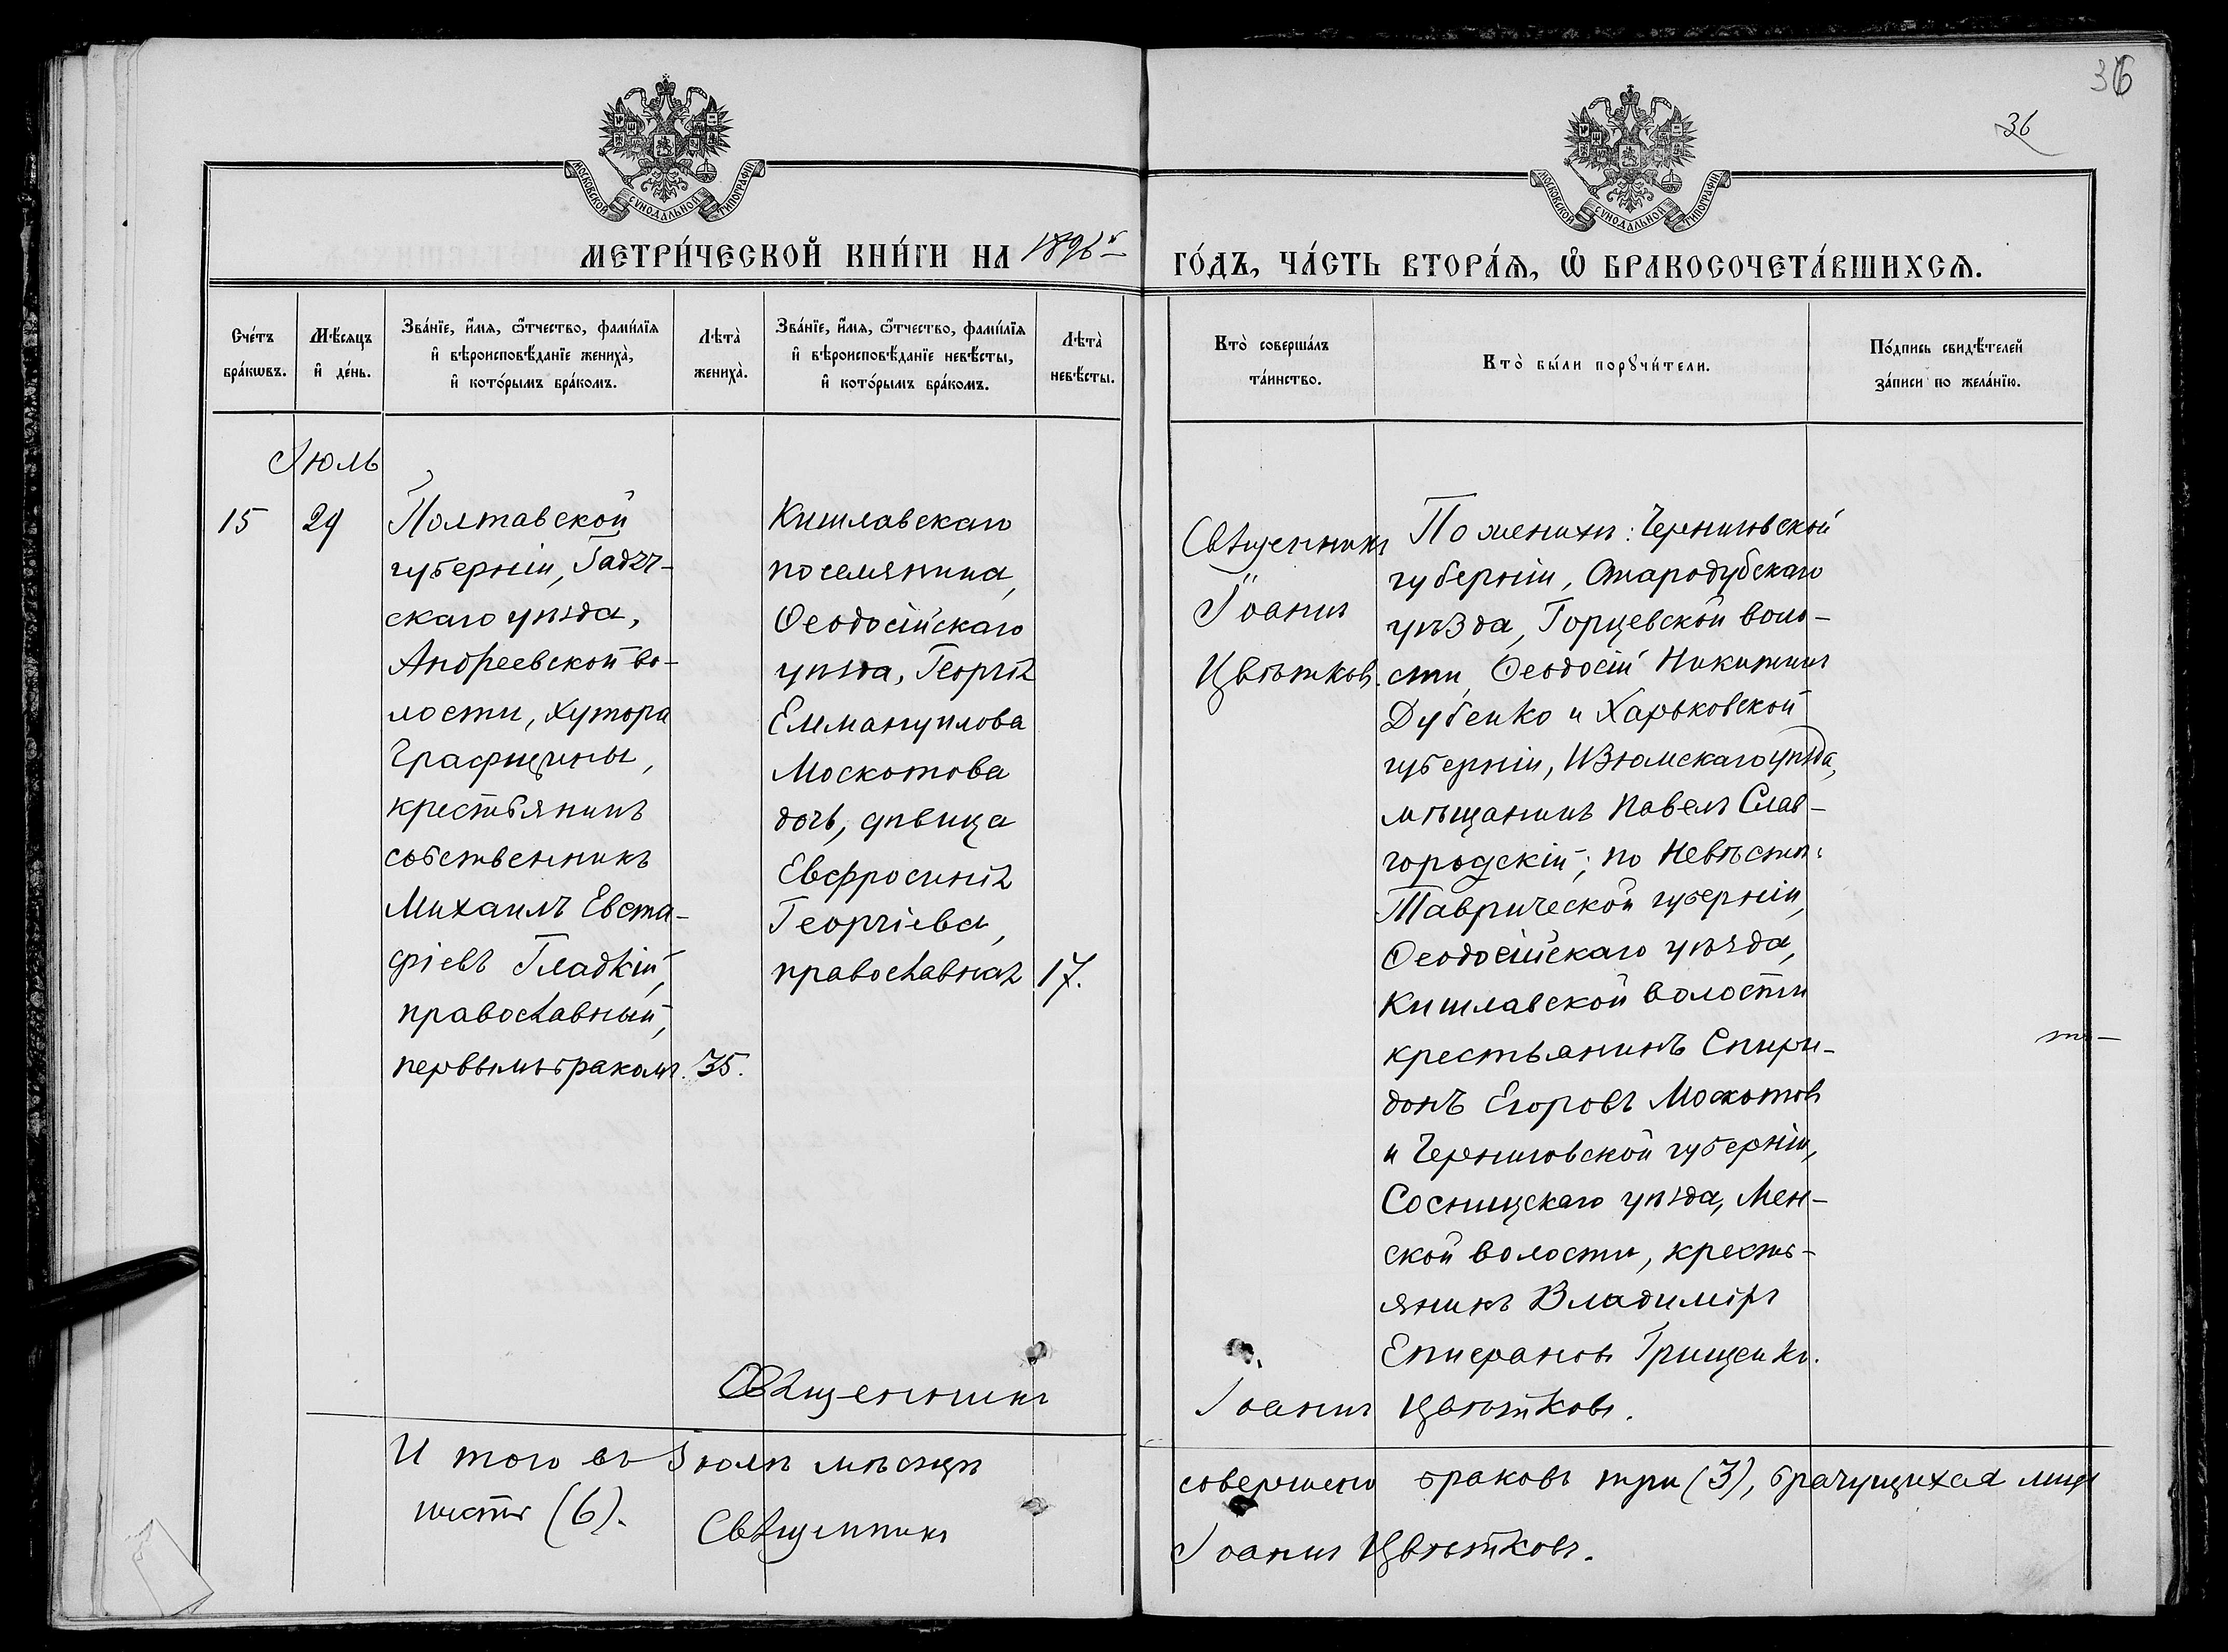 36
36
МОСКОВСКОЙ СѴНОДАЛЬНОЙ ТИПОГРАФІИ
МОСКОВСКОЙ СѴНОДАЛЬНОЙ ТИПОГРАФІИ
МЕТРИ́ЧЕСКОЙ КНИ́ГИ НА 1896й
ГО́ДЪ, ЧА́СТЬ ВТОРА́Ѧ, Ѽ БРАКОСОЧЕТА́ВШИХСѦ.
Сче́тъ бра́кѡвъ.
Мѣ́сяцъ и҆ де́нь.
Зва́нїе, и҆́мѧ, ѻ҆́тчество, фами́лїѧ
и҆ вѣроисповѣ́данїе жениха̀,
и҆ кото́рымъ бра́комъ.
Лѣта̀ жениха̀.
Зва́нїе, и҆́мѧ, ѻ҆́тчество, фами́лїѧ
и҆ вѣроисповѣ́данїе невѣ́сты,
и҆ кото́рымъ бра́комъ.
Лѣта̀ невѣ́сты.
Кто̀ соверша́лъ та́инство.
Кто̀ бы́ли порꙋчи́тели.
По́дпись свидѣ́телей
за́писи по жела́нїю.
Іюль
15
29
Полтавской
губерніи, Гадяч-
скаго уѣзда,
Андреевской во-
лости, хутора
Графщины,
крестьянинъ
собственникъ
Михаилъ Евста-
фіевъ Гладкій,
православный,
первымъ бракомъ.
35.
Кишлавскаго
поселянина,
Ѳеодосійскаго
уѣзда, Георгія
Еммануилова
Москотова
дочь, дѣвица
Евфросинія
Георгіева,
православная
17.
Священникъ
Іоаннъ
Цвѣтковъ.
По женихѣ: Черниговской
губерніи, Стародубскаго
уѣзда, Горцевской воло-
сти, Ѳеодосій Никитинъ
Дубенко и Харьковской
губерніи, Изюмскаго уѣзда,
мѣщанинъ Павелъ Слав-
городскій; по невѣстѣ:
Таврической губерніи,
Ѳеодосійскаго уѣзда,
Кишлавской волости
крестьянинъ Спири-
донъ Егоровъ Москотовъ
и Черниговской губерніи,
Сосницскаго уѣзда, Мен-
ской волости, кресть-
янинъ Владиміръ
Епифановъ Грищенко.
Священникъ Іоаннъ Цвѣтковъ.
Итого въ Іюлѣ мѣсяцѣ совершено браковъ три (3), брачущихся лицъ
шесть (6). Священникъ Іоаннъ Цвѣтковъ.